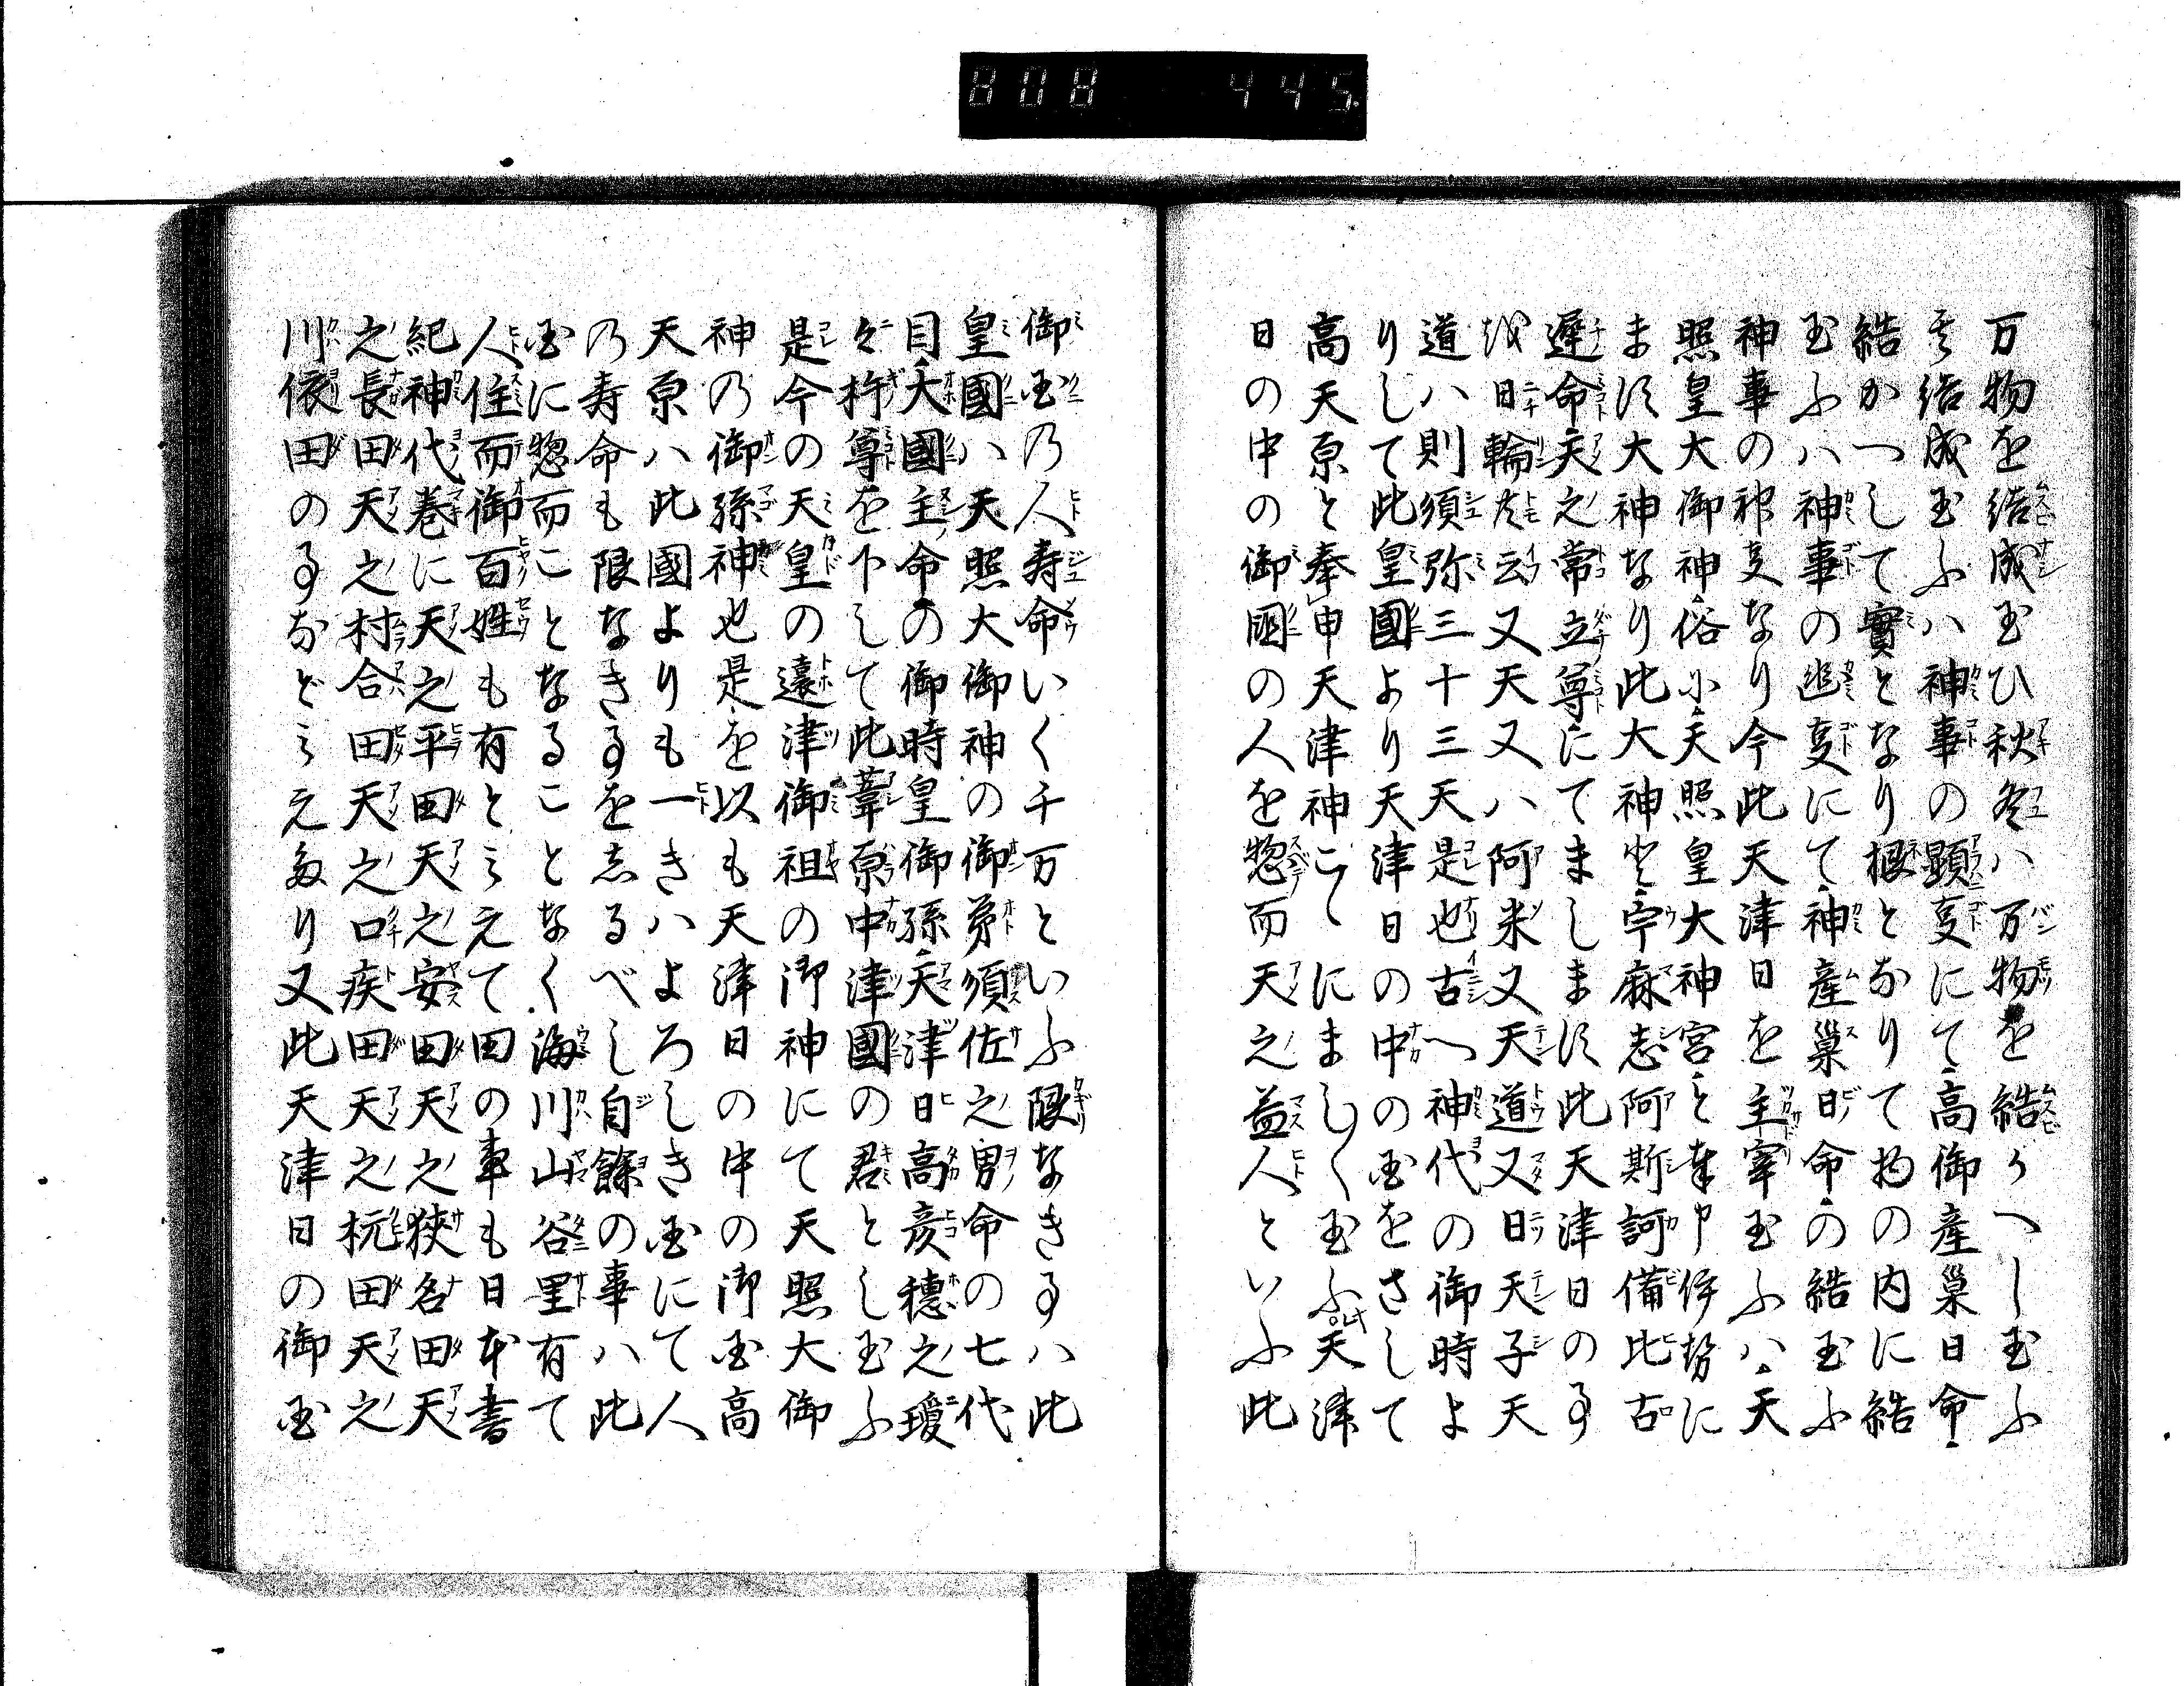 808 445
万物を結成玉ひ秋冬ハ万物を結りへし玉ふ
結成玉ふハ神事の顕事にて高御産巣日命
結かへして實となり根となりて物の内に結
玉ふハ神事の幽事にて神産巣日命の結玉ふ
神事の神事なり今此天津日を主宰玉ふハ天
照皇大御神俗に天照皇大神宮と奉申伊勢に
ます大神なり此大神と宇麻志阿斯訶備比古
遅命天之常立尊にてまします此天津日の事
を日輪共云又天又ハ阿米又天道又日天子天
道ハ則須弥三十三天是也古へ神代の御時よ
りして此皇國より天津日の中の国をさして
高天原と奉申天津神こゝにまし〳〵玉ふ天津
日の中の御國の人を惣而天之益人といふ此
御国の人寿命いく千万といふ限なき事ハ此
皇國ハ天照大御神の御弟須佐之男命の七代
目大國主命の御時皇御孫天津日高彦穂之瓊
々杵尊を下して此葦原中津國の君とし玉ふ
是今の天皇の遠津御祖の御神にて天照大御
神の御孫神也是を以も天津日の中の御国高
天原ハ此國よりも一きハよろしき国にて人
の寿命も限なき事を志るべし自餘の事ハ此
国に惣而ことなることなく海川山谷里有て
人住而御百姓も有とミえて田の事も日本書
紀神代巻に天之平田天之安田天之狭名田天
之長田天之村合田天之口疾田天之杭田天之
川依田の事などミえたり又此天津日の御国